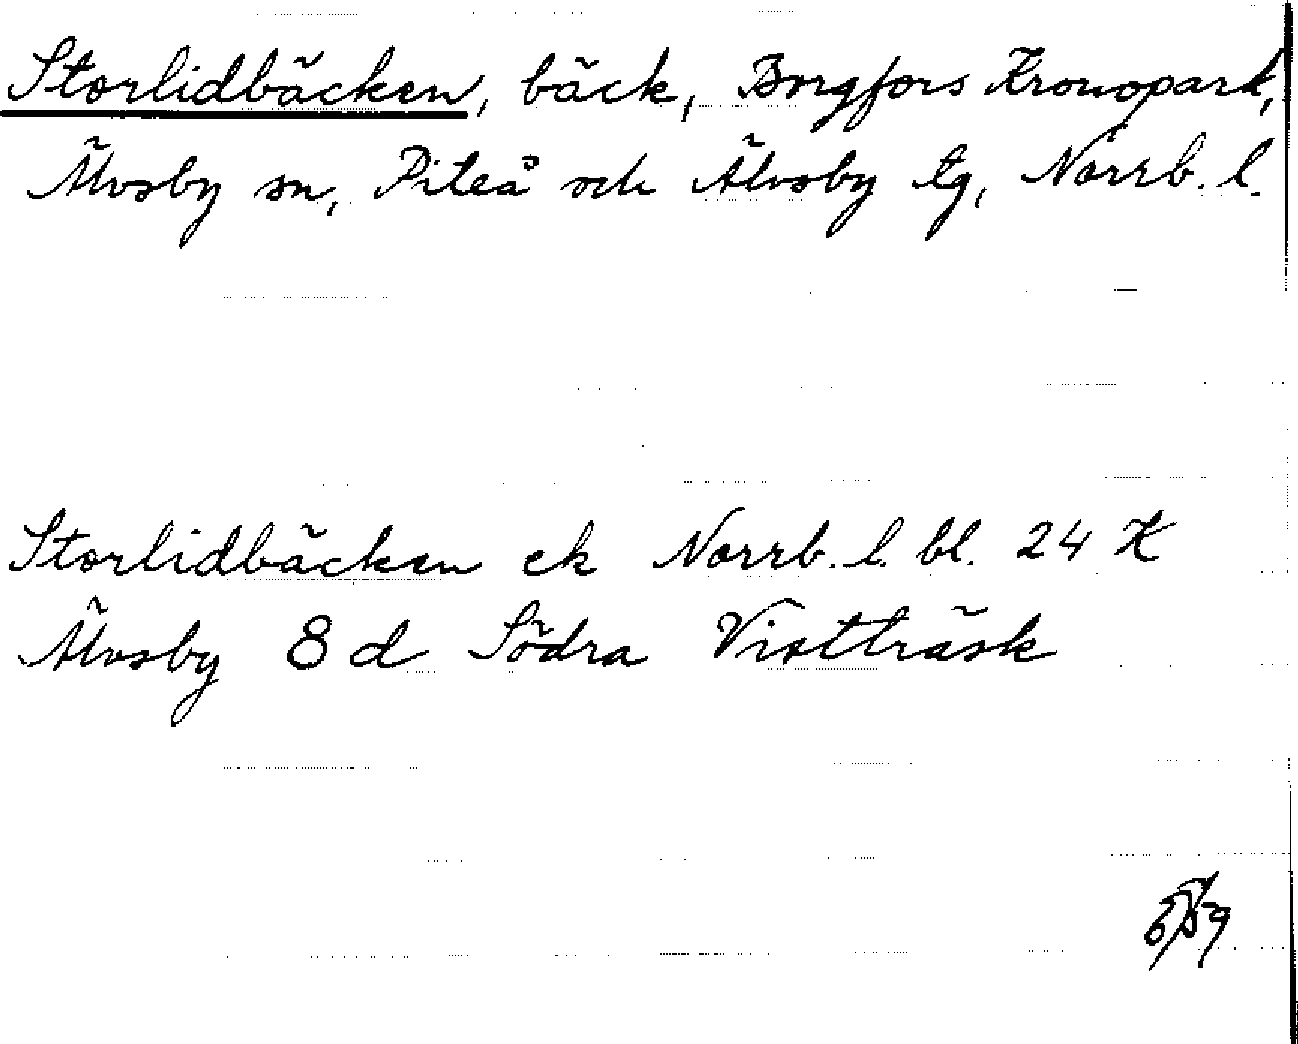 Storlidbäcken, bäck, Borgfors Kronopark,
Älvsby sn, Piteå och Älvsby tg, Norrb. l.
Storlidbäcken ek Norrb. l. bl. 24 K
Älvsby 8 d Södra Vistträsk